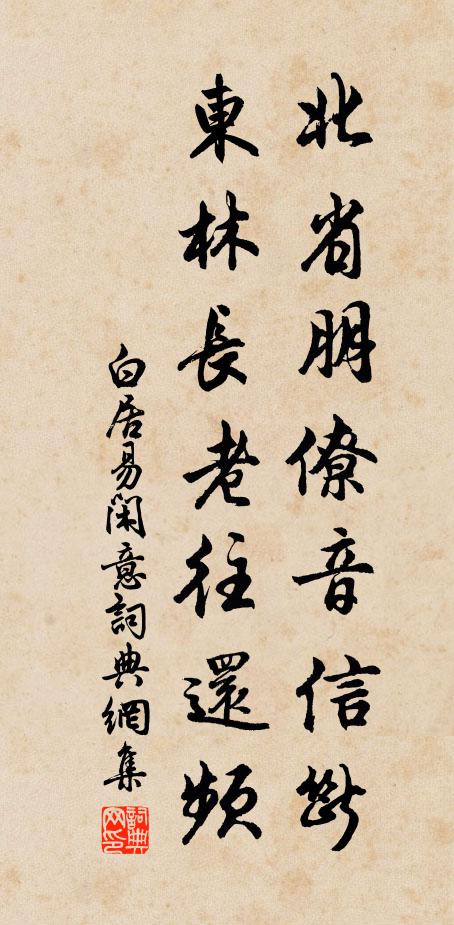 北省朋僚音信斷
東林長老往還頻
白居易閑意詞典網集
詞典网印